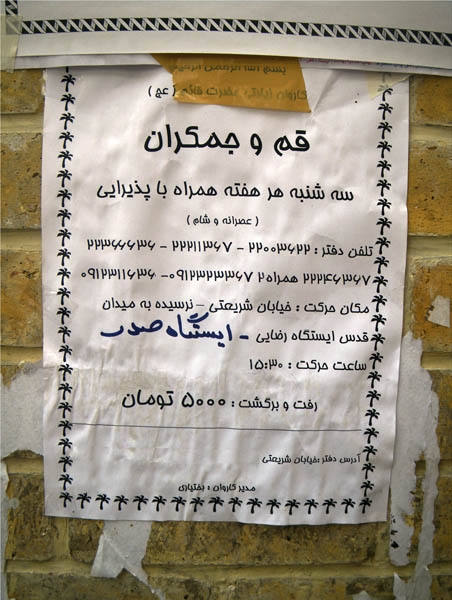 بسم الله الرحمن الرحیم
کاروان زیارتی حضرت قائم (عج)
قم و جمکران
سه شنبه هر هفته همراه با پذیرایی
( عصرانه و شام )
تلفن دفتر : ۲۲۰۰۳۶۲۲ - ۲۲۲۱۱۳۶۷ - ۲۲۳۶۶۶۳۶
۲۲۲۴۶۳۶۷ همراه ۰۹۱۲۳۲۳۳۶۷۲ - ۰۹۱۲۳۱۱۶۳۶
مکان حرکت : خیابان شریعتی - نرسیده به میدان
قدس ایستگاه رضایی - ایستگاه صدر
ساعت حرکت : ۱۵:۳۰
رفت و برگشت : ۵۰۰۰ تومان
آدرس دفتر :خیابان شریعتی
مدیر کاروان : بختیاری